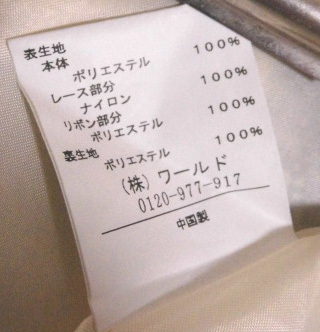 表生地
本体 100%
ポリエステル
レース部分 100%
ナイロン
リボン部分 100%
ポリエステル
裏生地 100%
ポリエステル
(株)ワールド
0120-977-917
中国製